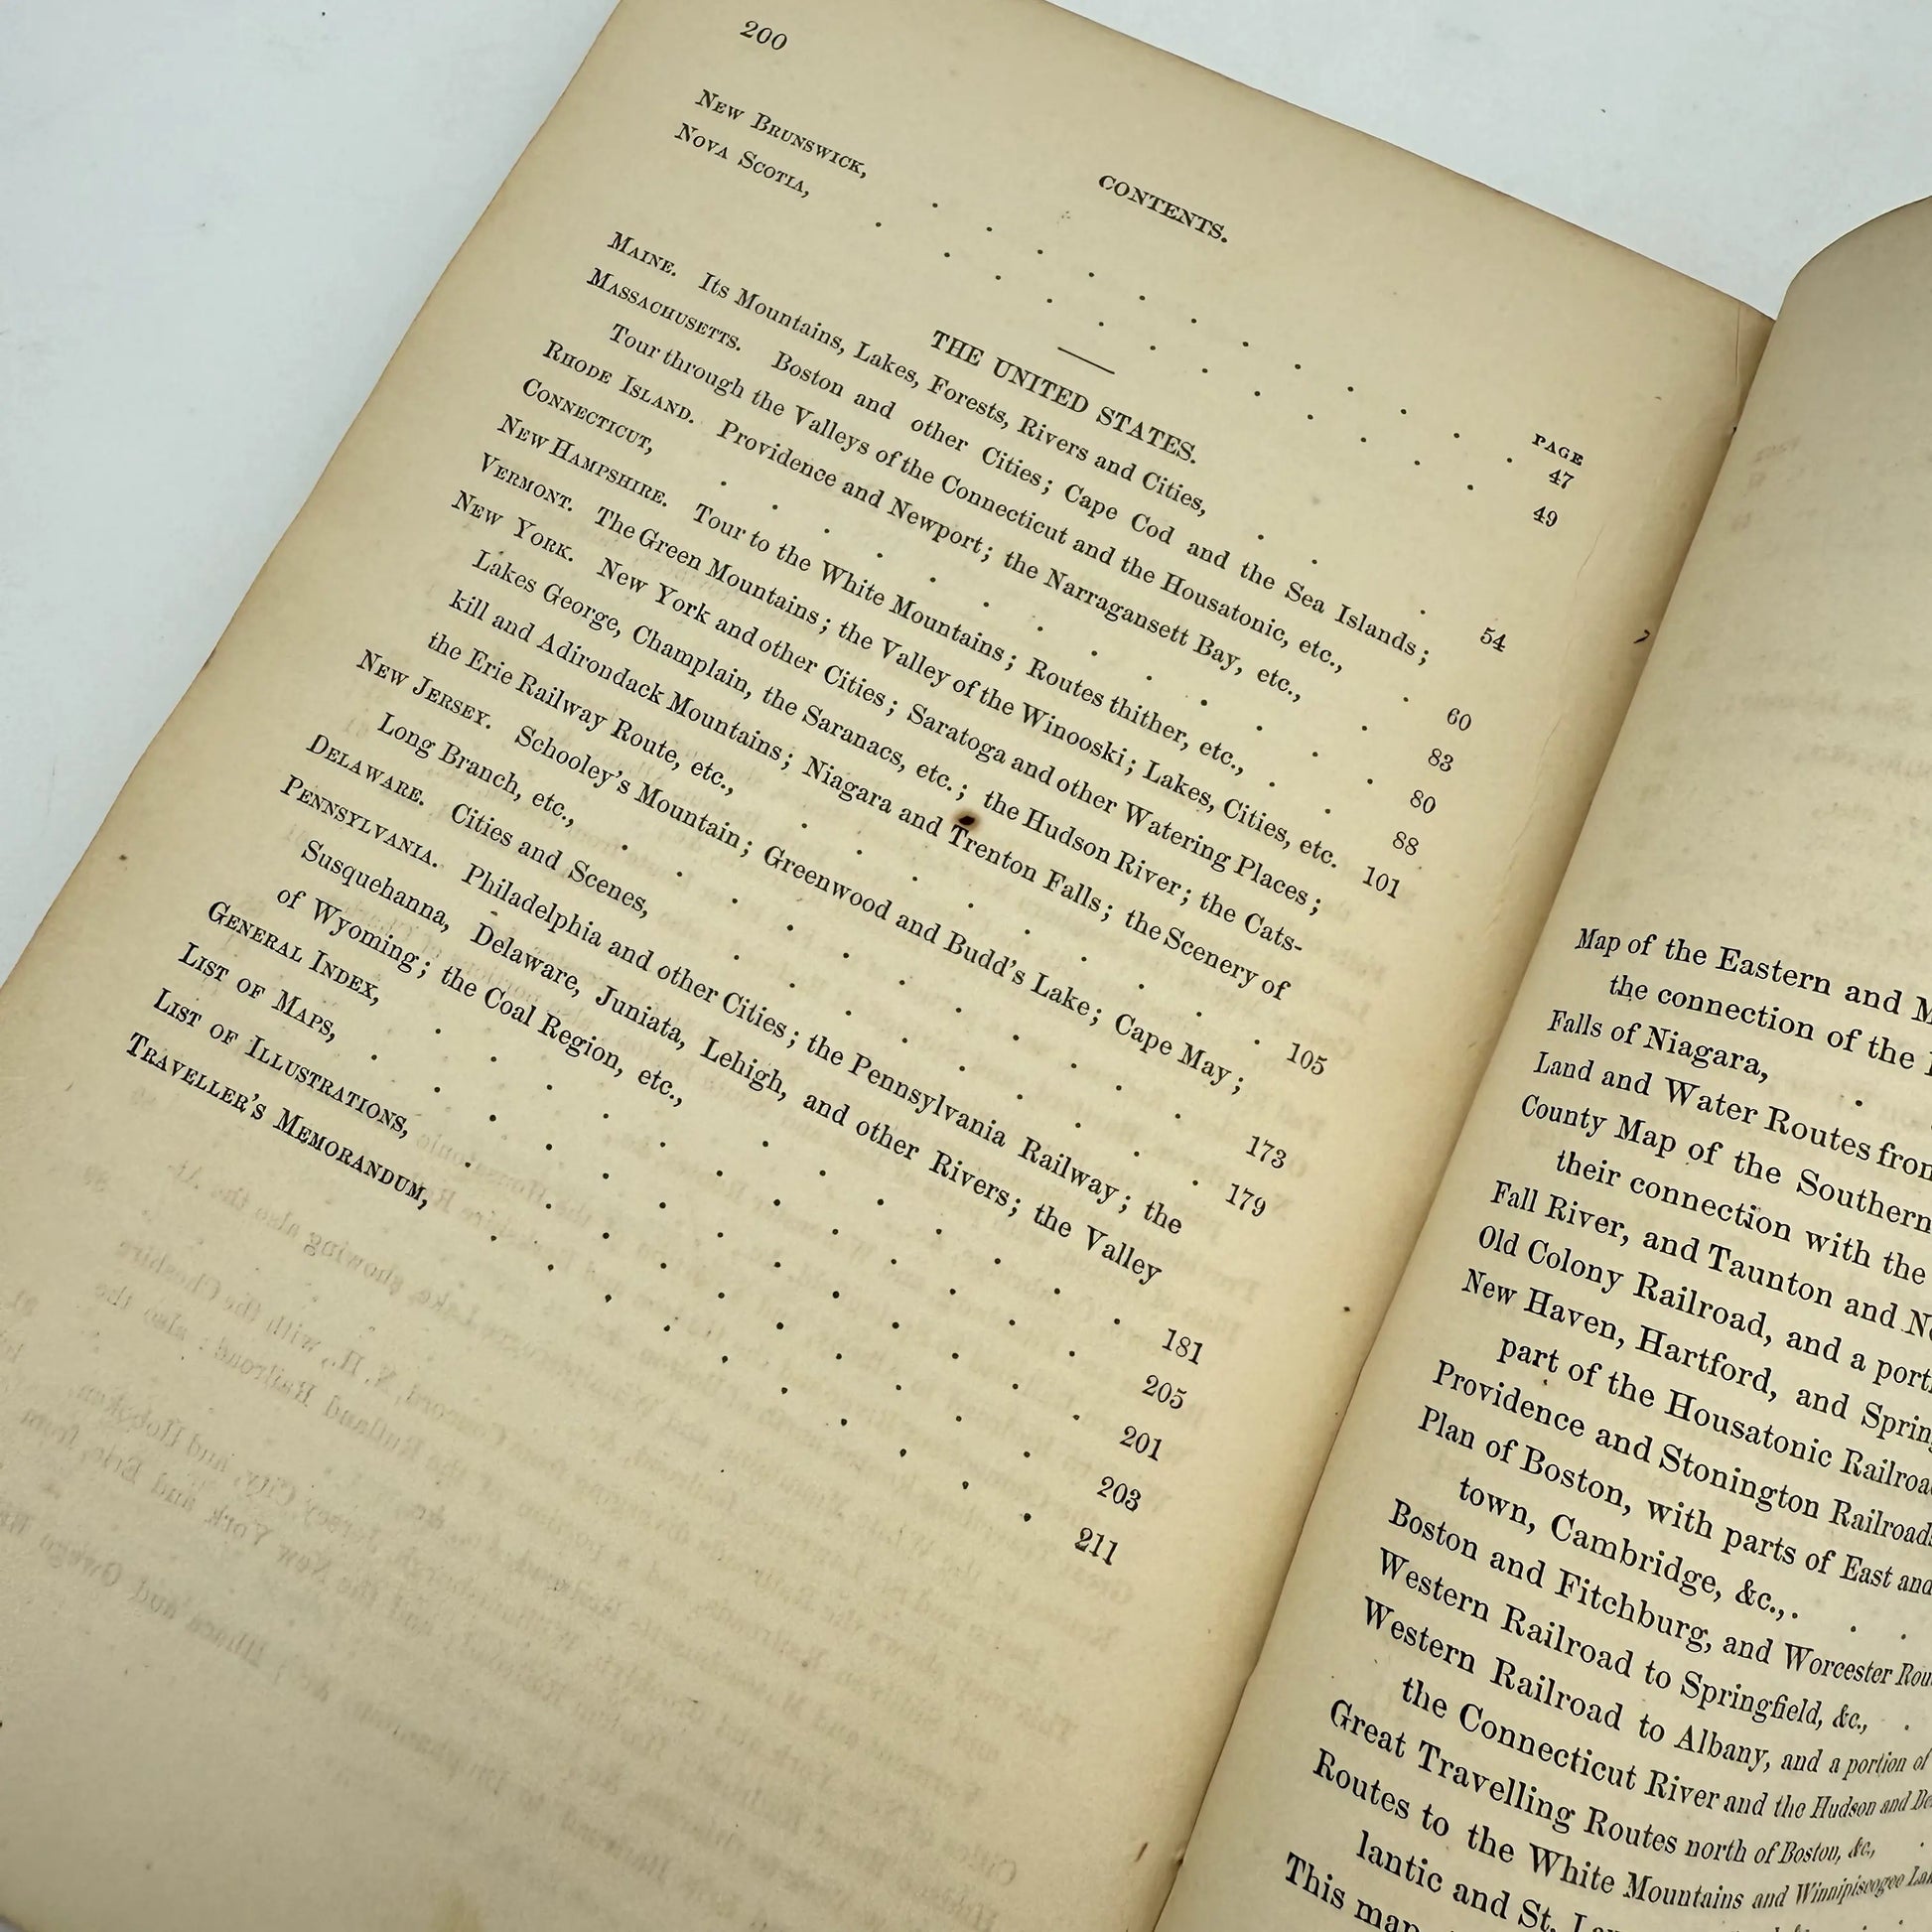 200
CONTENTS.
PAGE
NEW BRUNSWICK, . . . . . . . . . . . . 47
NOVA SCOTIA, . . . . . . . . . . . . 49
THE UNITED STATES.
MAINE. Its Mountains, Lakes, Forests, Rivers and Cities, . . 54
MASSACHUSETTS. Boston and other Cities; Cape Cod and the Sea Islands;
Tour through the Valleys of the Connecticut and the Housatonic, etc., . 60
RHODE ISLAND. Providence and Newport; the Narragansett Bay, etc., . . 83
CONNECTICUT, . . . . . . . . . . . . . 80
NEW HAMPSHIRE. Tour to the White Mountains; Routes thither, etc., . . 88
VERMONT. The Green Mountains; the Valley of the Winooski; Lakes, Cities, etc. 101
NEW YORK. New York and other Cities; Saratoga and other Watering Places;
Lakes George, Champlain, the Saranacs, etc.; the Hudson River; the Cats-
kill and Adirondack Mountains; Niagara and Trenton Falls; the Scenery of
the Erie Railway Route, etc., . . . . . . . . . 105
NEW JERSEY. Schooley's Mountain; Greenwood and Budd's Lake; Cape May;
Long Branch, etc., . . . . . . . . . . . 173
DELAWARE. Cities and Scenes, . . . . . . . . . 179
PENNSYLVANIA. Philadelphia and other Cities; the Pennsylvania Railway; the
Susquehanna, Delaware, Juniata, Lehigh, and other Rivers; the Valley
of Wyoming; the Coal Region, etc., . . . . . . . 181
GENERAL INDEX, . . . . . . . . . . . . 205
LIST OF MAPS, . . . . . . . . . . . . . 201
LIST OF ILLUSTRATIONS, . . . . . . . . . . . 203
TRAVELLER'S MEMORANDUM, . . . . . . . . . . 211
Map of the Eastern and
the connection of the
Falls of Niagara, .
Land and Water Routes from
County Map of the Southern
their connection with the
Fall River, and Taunton and
Old Colony Railroad, and a
New Haven, Hartford, and
part of the Housatonic
Providence and Stonington
Plan of Boston, with parts of East and
town, Cambridge, &c., . . .
Boston and Fitchburg, and Worcester
Western Railroad to Springfield, &c., .
Western Railroad to Albany, and a portion of
the Connecticut River and the Hudson and
Great Travelling Routes north of Boston, &c., .
Routes to the White Mountains and Winnipiseogee
lantic and St.
This map